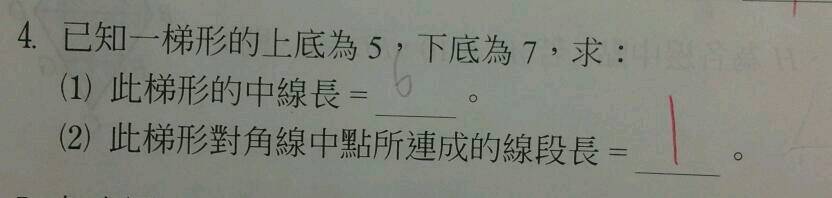 4. 已知一梯形的上底為 5，下底為 7，求：
(1) 此梯形的中線長 = 6 。
(2) 此梯形對角線中點所連成的線段長 = 1 。